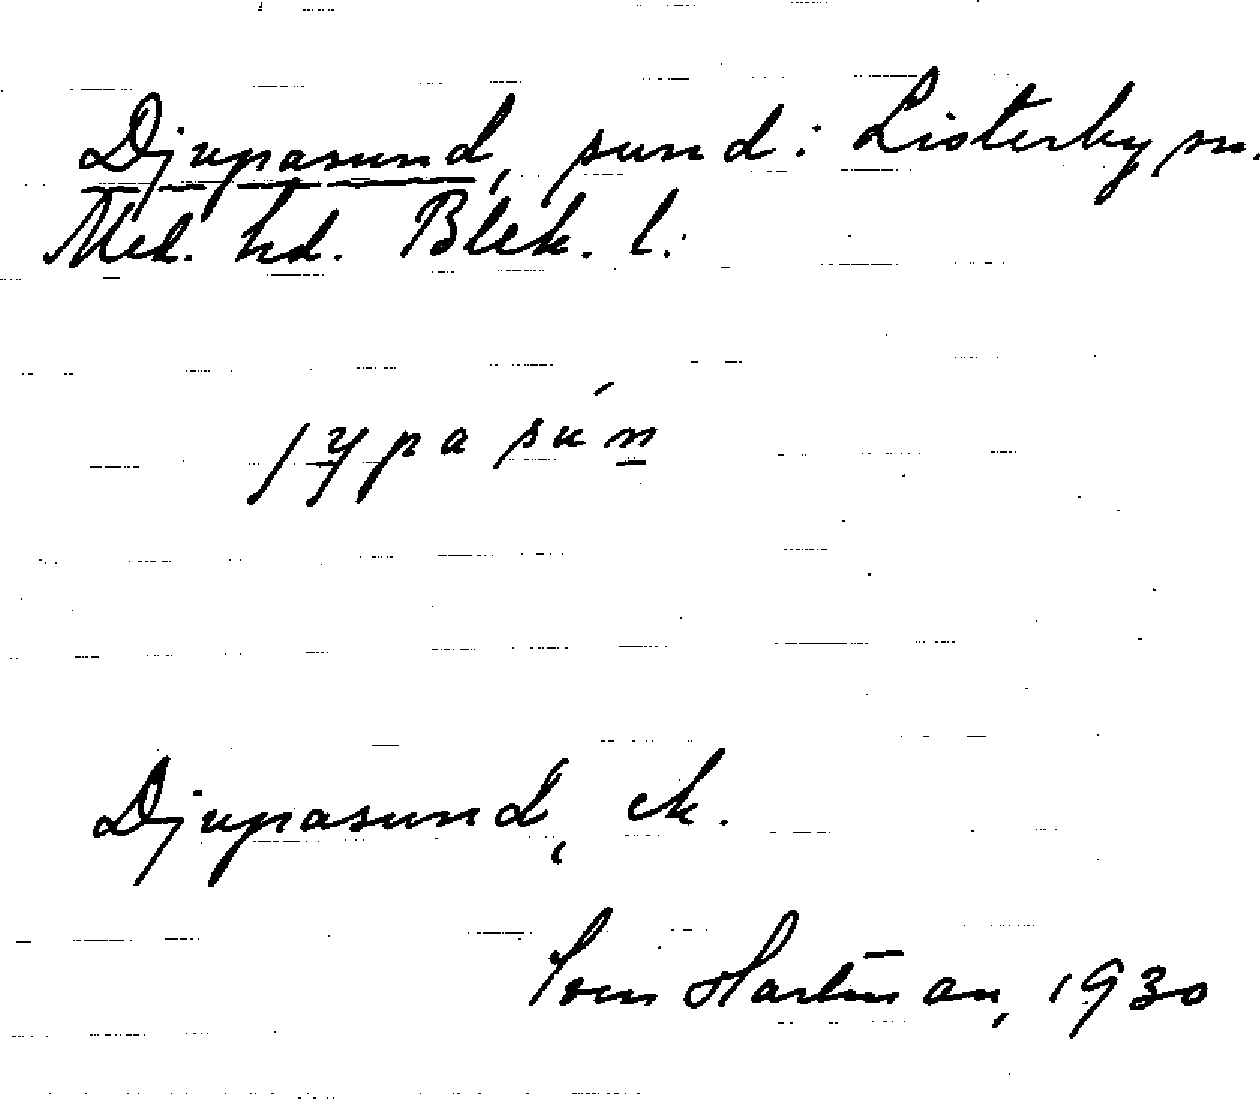 Djupasund, sund: Listerby sn.
Med. hd. Blek. l.
Djupasund, ek.
Sven Hartman, 1930